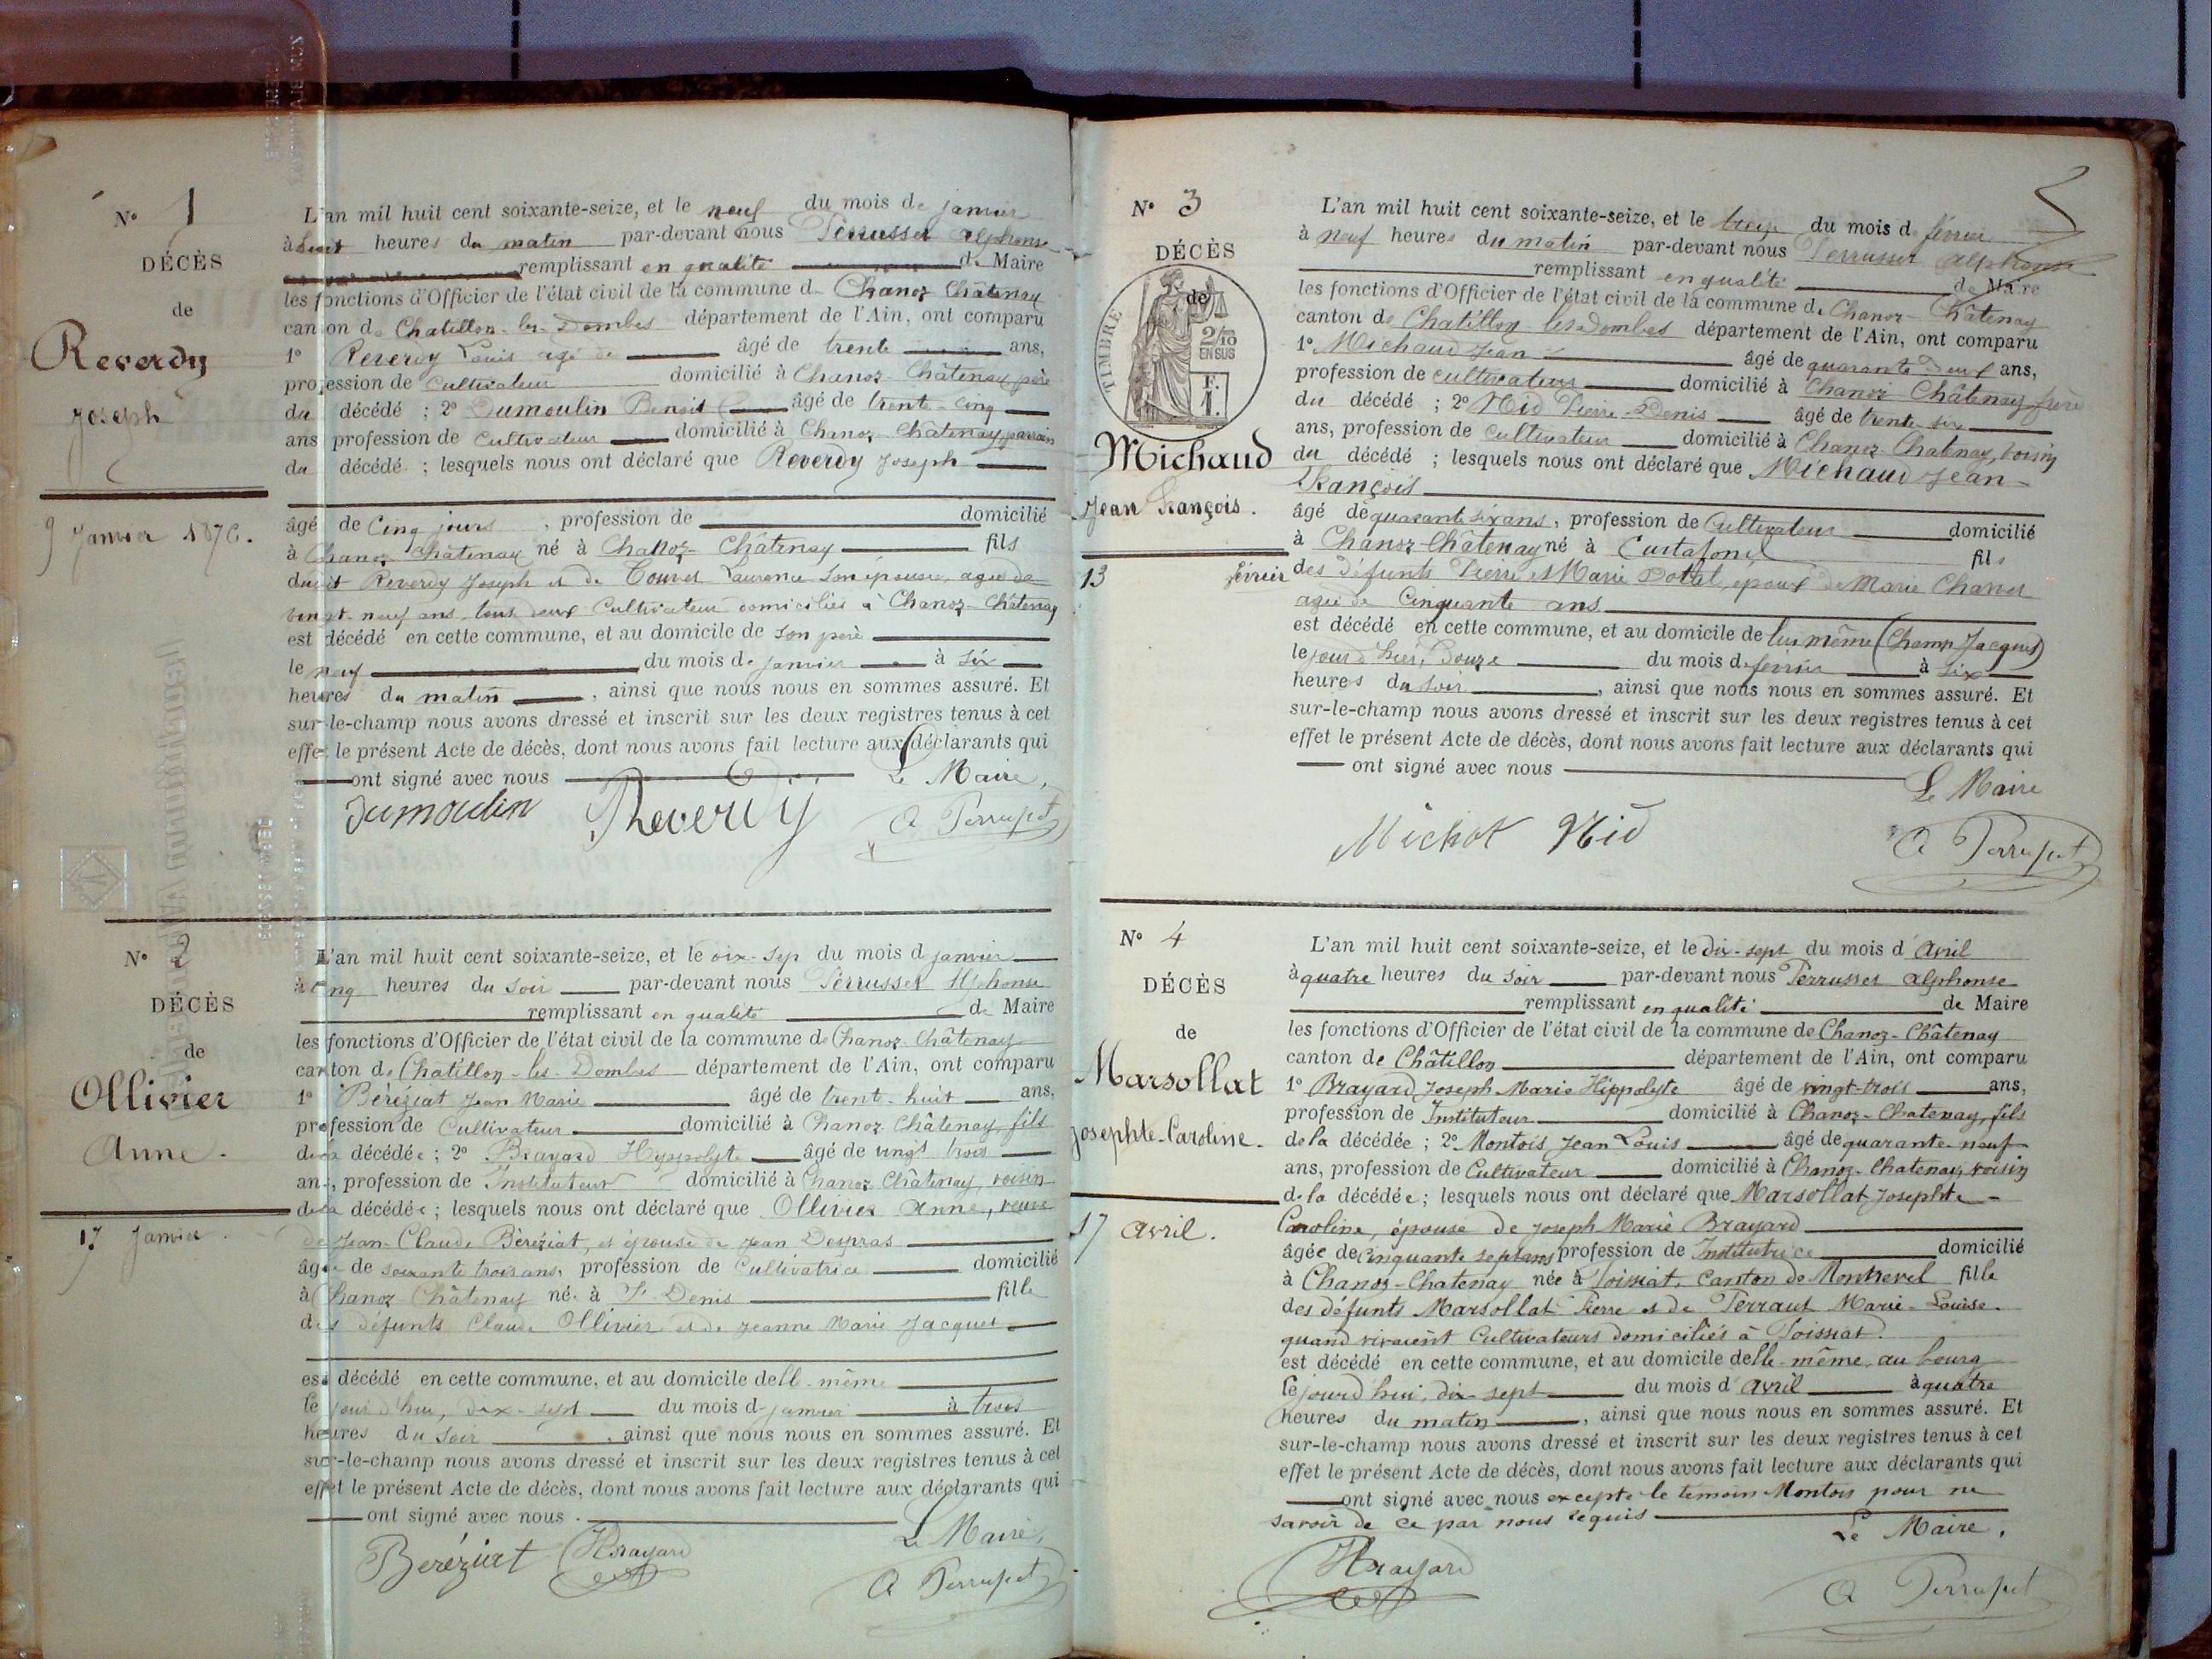 N° 1
DÉCÈS
de
Reverdy
Joseph
9 Janvier 1876.
L'an mil huit cent soixante-seize, et le neuf du mois de janvier
à huit heures du matin par-devant nous Perrusset Alphonse
remplissant en qualité de Maire
les fonctions d'Officier de l'état civil de la commune de Chanoz Châtenay
canton de Chatillon-les-Dombes département de l'Ain, ont comparu
1° Reverdy Louis agé de âgé de trente ans,
profession de Cultivateur domicilié à Chanoz-Châtenay père
du décédé ; 2° Dumoulin Benoit âgé de trente-cinq
ans profession de Cultivateur domicilié à Chanoz-Chatenay parrain
du décédé ; lesquels nous ont déclaré que Reverdy Joseph
âgé de Cinq jours, profession de domicilié
à Chanoz Châtenay né à Chanoz-Châtenay fils
dudit Reverdy Joseph et de Laurence son épouse, agée de
vingt-neuf ans, tous deux Cultivateur domiciliés à Chanoz-Châtenay
est décédé en cette commune, et au domicile de son père
le neuf du mois de janvier à six
heures du matin, ainsi que nous nous en sommes assuré. Et
sur-le-champ nous avons dressé et inscrit sur les deux registres tenus à cet
effet le présent Acte de décès, dont nous avons fait lecture aux déclarants qui
ont signé avec nous Le Maire,
Dumoulin Reverdy A Perrusset
N° 2
DÉCÈS
de
Ollivier
Anne.
17 Janvier.
L'an mil huit cent soixante-seize, et le dix-sep du mois d janvier
à cinq heures du soir par-devant nous Perrusset Alphonse
remplissant en qualité de Maire
les fonctions d'Officier de l'état civil de la commune de Chanoz-Châtenay
canton de Chatillon-les-Dombes département de l'Ain, ont comparu
1° Béréziat Jean Marie âgé de trent-huit ans,
profession de Cultivateur domicilié à Chanoz-Châtenay, fils
de la décédée ; 2° Brayard Hyppolyte âgé de vingt trois
ans, profession de Instituteur domicilié à Chanoz Châtenay, voisin
de la décédée ; lesquels nous ont déclaré que Ollivier Anne, veuve
de Jean-Claude Béréziat, et épouse de Jean Desprras
âgée de soixante trois ans, profession de Cultivatrice domicilié
à Chanoz-Châtenay née à St Denis fille
des défunts Claude Ollivier et de Jeanne Marie Jacquet
est décédé en cette commune, et au domicile d'elle-même
le jourd'hui, dix-sept du mois d janvier à trois
heures du soir, ainsi que nous nous en sommes assuré. Et
sur-le-champ nous avons dressé et inscrit sur les deux registres tenus à cet
effet le présent Acte de décès, dont nous avons fait lecture aux déclarants qui
ont signé avec nous. Le Maire,
Béréziat HBrayard A Perrusset
N° 3
DÉCÈS
de
TIMBRE
2/10
EN SUS
F.
1.
Michaud
Jean François.
13 février
L'an mil huit cent soixante-seize, et le treize du mois d février
à neuf heures du matin par-devant nous Perrusset Alphonse
remplissant en qualité de Maire
les fonctions d'Officier de l'état civil de la commune de Chanoz-Châtenay
canton de Chatillon-les-Dombes département de l'Ain, ont comparu
1° Michaud Jean âgé de quarante deux ans,
profession de cultivateur domicilié à Chanoz Châtenay frère
du décédé ; 2° Nid Pierre-Denis âgé de trente-six
ans, profession de Cultivateur domicilié à Chanoz Chatenay, voisin
du décédé ; lesquels nous ont déclaré que Michaud Jean-
François
âgé de quarante six ans, profession de Cultivateur domicilié
à Chanoz-Châtenay né à Curtafond fils
des défunts Pierre et Marie époux de Marie
agée de Cinquante ans
est décédé en cette commune, et au domicile de lui même (Champ Jacques)
le jour d'hier, Douze du mois de février à six
heures du soir, ainsi que nous nous en sommes assuré. Et
sur-le-champ nous avons dressé et inscrit sur les deux registres tenus à cet
effet le présent Acte de décès, dont nous avons fait lecture aux déclarants qui
ont signé avec nous
Le Maire
Michot Nid A Perrusset
N° 4
DÉCÈS
de
Marsollat
Josephte-Caroline.
17 avril.
L'an mil huit cent soixante-seize, et le dix-sept du mois d'Avril
à quatre heures du soir par-devant nous Perrusset Alphonse
remplissant en qualité de Maire
les fonctions d'Officier de l'état civil de la commune de Chanoz-Châtenay
canton de Châtillon département de l'Ain, ont comparu
1° Brayard Joseph-Marie Hippolyte âgé de vingt-trois ans,
profession de Instituteur domicilié à Chanoz-Chatenay, fils
de la décédée ; 2° Montois Jean Louis âgé de quarante-neuf
ans, profession de Cultivateur domicilié à Chanoz-Chatenay, voisin
de la décédée ; lesquels nous ont déclaré que Marsollat Josephte-
Caroline, épouse de Joseph Marie Brayard
âgée de cinquante sept ans profession de Institutrice domicilié
à Chanoz-Chatenay née à Foissiat, Canton de Montrevel fille
des défunts Marsollat Pierre et de Perraut Marie-Louise.
quand vivaient Cultivateurs domiciliés à Foissiat.
est décédé en cette commune, et au domicile d'elle-même, au bourg
le jourd'hui, dix-sept du mois d'avril à quatre
heures du matin, ainsi que nous nous en sommes assuré. Et
sur-le-champ nous avons dressé et inscrit sur les deux registres tenus à cet
effet le présent Acte de décès, dont nous avons fait lecture aux déclarants qui
ont signé avec nous excepté le témoin Montois pour ne
savoir de ce par nous requis
Le Maire,
HBrayard A Perrusset